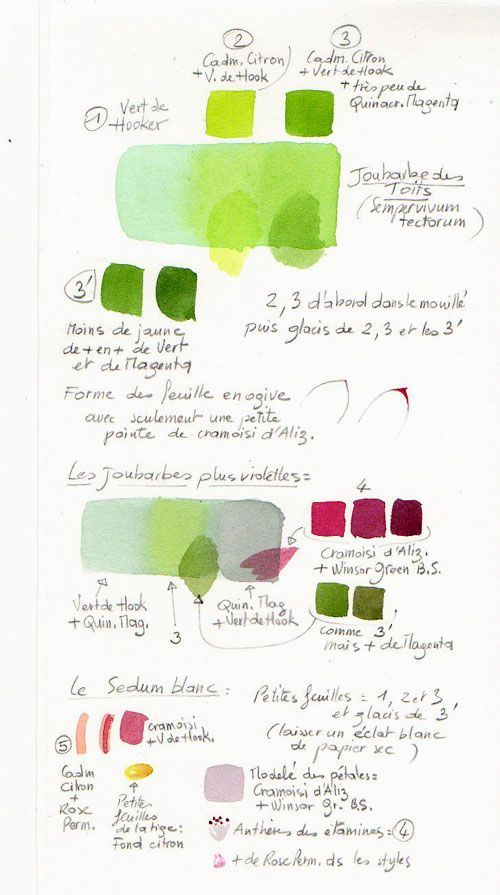 ②
Cadm. Citron
+ V. de Hook
③
Cadm. Citron
+ Vert de Hook
+ très peu de
Quinacr. Magenta
① Vert de
Hooker
Joubarbe des
Toits
(Sempervivum
tectorum)
3'
Moins de jaune
de + en + de Vert
et de Magenta
2, 3 d'abord dans le mouillé
puis glacis de 2, 3 et les 3'
Forme des feuille en ogive
avec seulement une petite
pointe de cramoisi d'Aliz.
Les Joubarbes plus violettes =
4
Cramoisi d'Aliz.
+ Winsor Green B.S.
Vert de Hook
+ Quin. Mag.
3
Quin. Mag
+ Vert de Hook
comme 3'
mais + de Magenta
Le Sedum blanc :
Petites feuilles = 1, 2 et 3
et glacis de 3'
(laisser un éclat blanc
de papier sec)
⑤
cramoisi
+ V de Hook.
Cadm
Citron
+
Rose
Perm.
Petites
feuilles
de la tige :
Fond citron
Modelé des pétales =
Cramoisi d'Aliz
+ Winsor Gr. B.S.
Anthères des étamines = ④
+ de Rose Perm. ds les styles